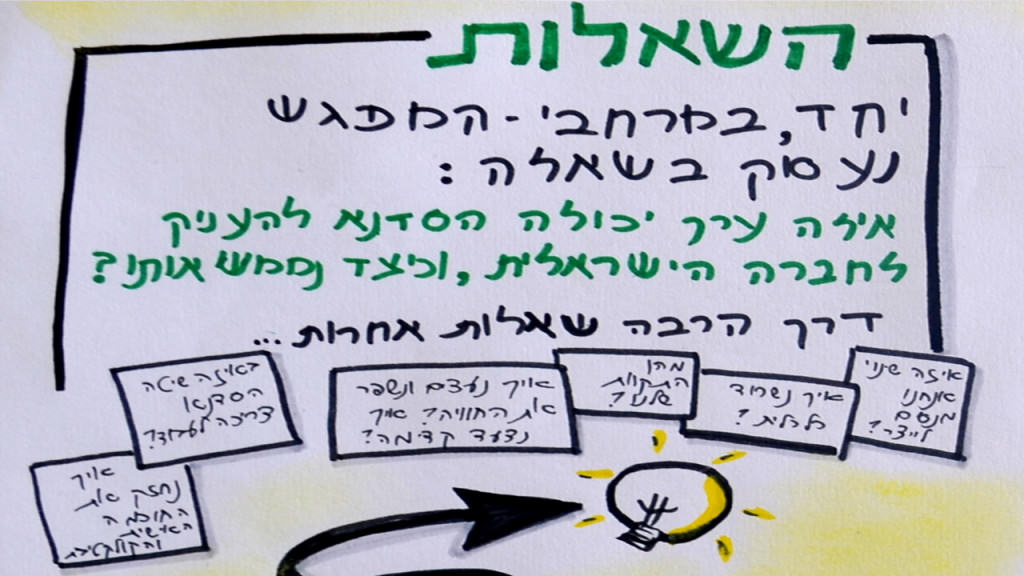 השאלות
יחד, במרחבי - המפגש
נעסוק בשאלה:
איזה ערך יכולה הסדנא להעניק
לחברה הישראלית, וכיצד נממש אותו?
דרך הרבה שאלות אחרות...
איזה שנוי
אנחנו
מנסים
לייצר?
איך נשרוד
כלכלית?
מהן
התקוות
שלנו?
איך נעצם ונשפר
את החוויה? איך
נצעד קדימה?
באיזה שיטה
הסדנא
צריכה לעבוד?
איך
נחזק את
החוכמה
האישית
והקולקטיבית